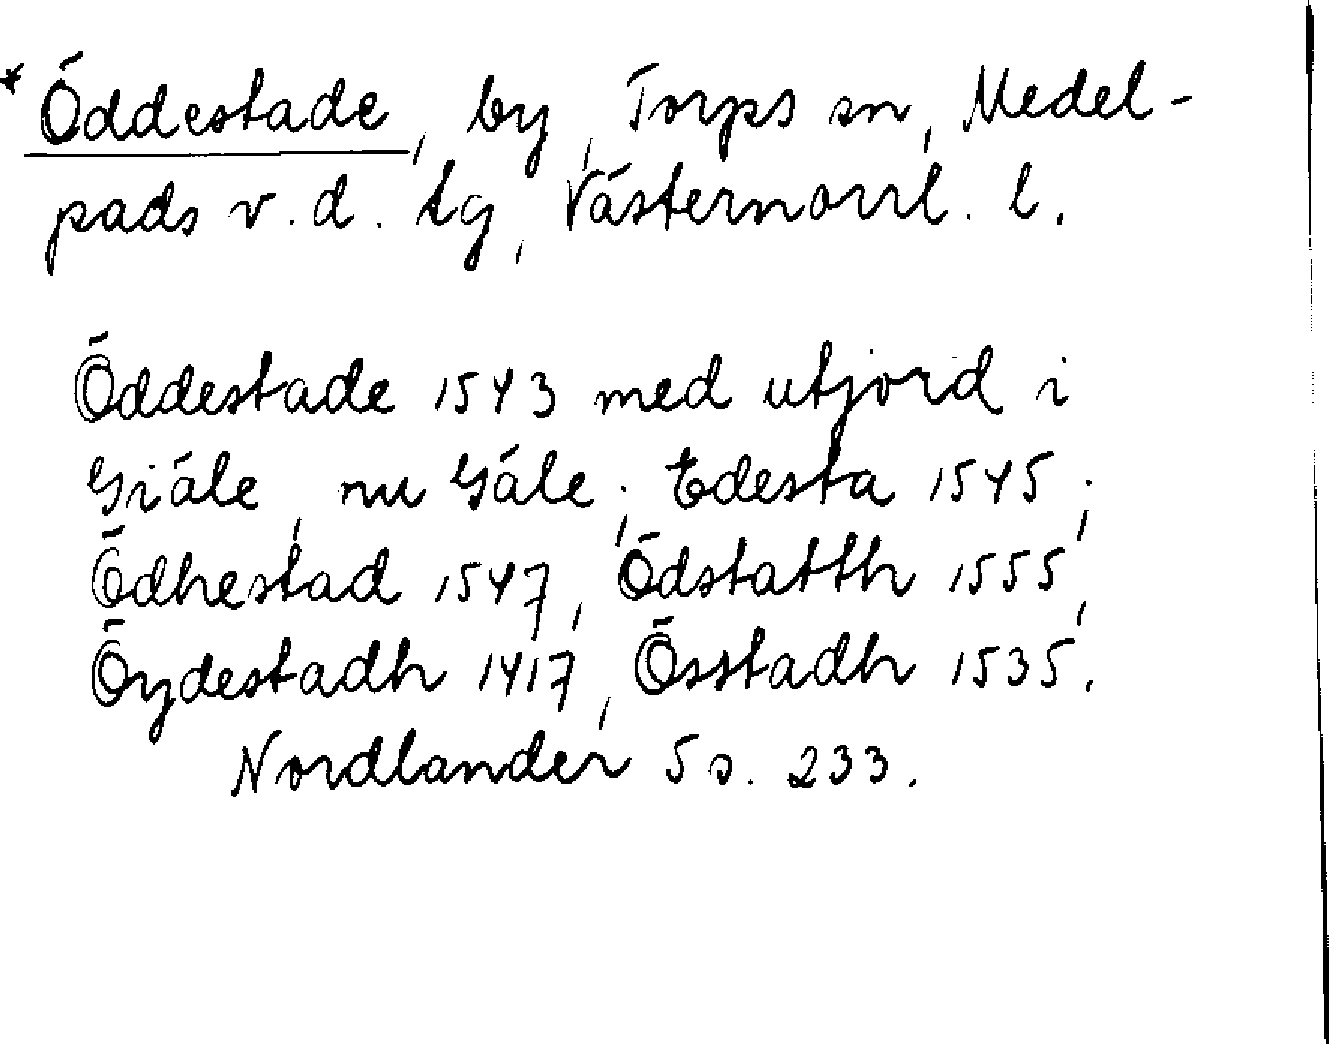 * Öddestade, by, Torps sn, Medel-
pads v. d. tg, Västernorrl. l.
Öddestade 1543 med utjord i
Giäle, nu Gäle; Edesta 1545;
Ödhestad 1547, Ödstatth 1555,
Öydestadh 1417, Össtadh 1535.
Nordlander 5 s. 233.